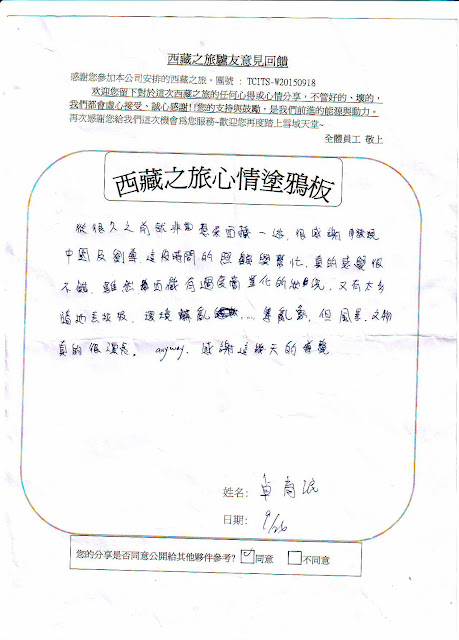 西藏之旅驢友意見回饋
感謝您參加本公司安排的西藏之旅。團號 : TCITS-W20150918
歡迎您留下對於這次西藏之旅的任何心得或心情分享，不管好的、壞的，
我們都會虛心接受、誠心感謝!!您的支持與鼓勵，是我們前進的能源與動力。
再次感謝您給我們這次機會為您服務~歡迎您再度踏上雪域天堂~
全體員工 敬上
西藏之旅心情塗鴉板
從很久之前就非常想來西藏一遊，很感謝
中國及劉導這段時間的照顧與幫忙，真的感覺很
不錯，雖然西藏有過度商業化的狀況，又有太多
隨地丟垃圾，環境髒亂 … 等亂象，但風景、文物
真的很漂亮。anyway. 感謝這幾天的
姓名:
日期: 9/26
您的分享是否同意公開給其他夥伴參考? ☑同意 □不同意